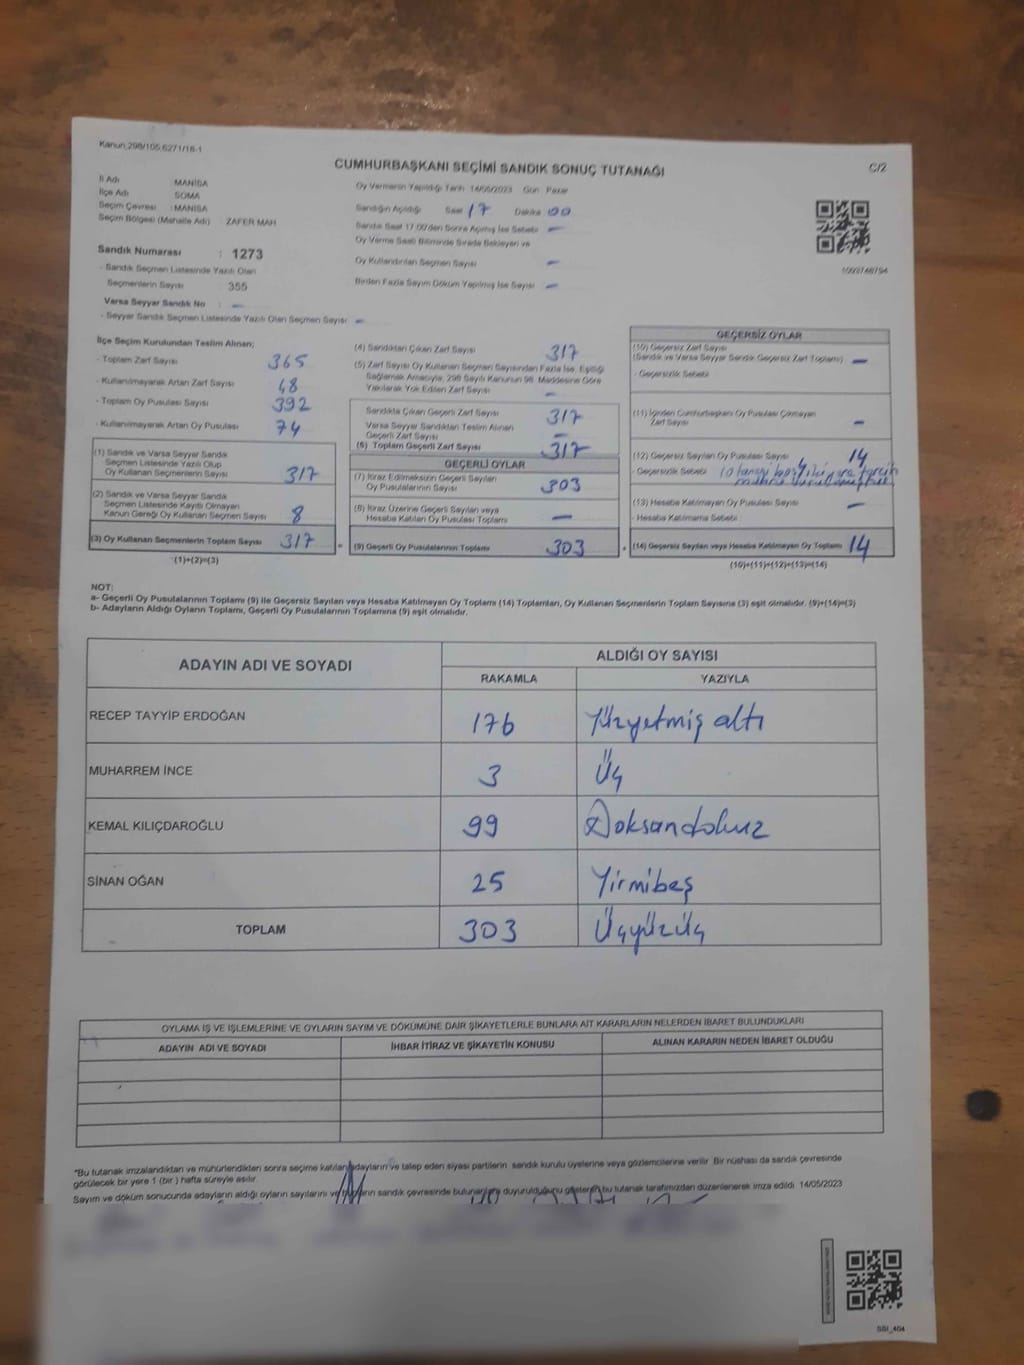 Kanun;298/105,6271/18-1
CUMHURBAŞKANI SEÇİMİ SANDIK SONUÇ TUTANAĞI
C/2
İl Adı : MANİSA
İlçe Adı : SOMA
Seçim Çevresi : MANİSA
Seçim Bölgesi (Mahalle Adı) : ZAFER MAH
Oy Vermenin Yapıldığı Tarih 14/05/2023 Gün : Pazar
Sandığın Açıldığı Saat 17 Dakika 00
Sandık Saat 17.00'den Sonra Açılmış İse Sebebi —
Oy Verme Saati Bitiminde Sırada Bekleyen ve
Oy Kullandırılan Seçmen Sayısı —
Birden Fazla Sayım Döküm Yapılmış İse Sayısı —
Sandık Numarası : 1273
- Sandık Seçmen Listesinde Yazılı Olan
Seçmenlerin Sayısı : 355
Varsa Seyyar Sandık No : —
- Seyyar Sandık Seçmen Listesinde Yazılı Olan Seçmen Sayısı : —
İlçe Seçim Kurulundan Teslim Alınan;
- Toplam Zarf Sayısı 365
- Kullanılmayarak Artan Zarf Sayısı 48
- Toplam Oy Pusulası Sayısı 392
- Kullanılmayarak Artan Oy Pusulası 74
(1) Sandık ve Varsa Seyyar Sandık
Seçmen Listesinde Yazılı Olup
Oy Kullanan Seçmenlerin Sayısı 317
(2) Sandık ve Varsa Seyyar Sandık
Seçmen Listesinde Kayıtlı Olmayan
Kanun Gereği Oy Kullanan Seçmen Sayısı 8
(3) Oy Kullanan Seçmenlerin Toplam Sayısı 317
(1)+(2)=(3)
(4) Sandıktan Çıkan Zarf Sayısı 317
(5) Zarf Sayısı Oy Kullanan Seçmen Sayısından Fazla İse, Eşitliği
Sağlamak Amacıyla, 298 Sayılı Kanunun 98. Maddesine Göre
Yakılarak Yok Edilen Zarf Sayısı —
Sandıkta Çıkan Geçerli Zarf Sayısı 317
Varsa Seyyar Sandıktan Teslim Alınan
Geçerli Zarf Sayısı —
(6) Toplam Geçerli Zarf Sayısı 317
GEÇERLİ OYLAR
(7) İtiraz Edilmeksizin Geçerli Sayılan
Oy Pusulalarının Sayısı 303
(8) İtiraz Üzerine Geçerli Sayılan veya
Hesaba Katılan Oy Pusulası Toplamı —
= (9) Geçerli Oy Pusulalarının Toplamı 303
GEÇERSİZ OYLAR
(10) Geçersiz Zarf Sayısı
(Sandık ve Varsa Seyyar Sandık Geçersiz Zarf Toplamı) —
- Geçersizlik Sebebi
(11) İçinden Cumhurbaşkanı Oy Pusulası Çıkmayan
Zarf Sayısı —
(12) Geçersiz Sayılan Oy Pusulası Sayısı 14
- Geçersizlik Sebebi
(13) Hesaba Katılmayan Oy Pusulası Sayısı —
- Hesaba Katılmama Sebebi
+ (14) Geçersiz Sayılan veya Hesaba Katılmayan Oy Toplamı 14
(10)+(11)+(12)+(13)=(14)
NOT:
a- Geçerli Oy Pusulalarının Toplamı (9) ile Geçersiz Sayılan veya Hesaba Katılmayan Oy Toplamı (14) Toplamları, Oy Kullanan Seçmenlerin Toplam Sayısına (3) eşit olmalıdır. (9)+(14)=(3)
b- Adayların Aldığı Oyların Toplamı, Geçerli Oy Pusulalarının Toplamına (9) eşit olmalıdır.
ADAYIN ADI VE SOYADI
ALDIĞI OY SAYISI
RAKAMLA YAZIYLA
RECEP TAYYİP ERDOĞAN 176 Yüzyetmiş altı
MUHARREM İNCE 3 Üç
KEMAL KILIÇDAROĞLU 99 Doksandokuz
SİNAN OĞAN 25 Yirmibeş
TOPLAM 303 Üçyüzüç
OYLAMA İŞ VE İŞLEMLERİNE VE OYLARIN SAYIM VE DÖKÜMÜNE DAİR ŞİKAYETLERLE BUNLARA AİT KARARLARIN NELERDEN İBARET BULUNDUKLARI
ADAYIN ADI VE SOYADI İHBAR İTİRAZ VE ŞİKAYETİN KONUSU ALINAN KARARIN NEDEN İBARET OLDUĞU
*Bu tutanak imzalandıktan ve mühürlendikten sonra seçime katılan adayların ve talep eden siyasi partilerin sandık kurulu üyelerine veya gözlemcilerine verilir. Bir nüshası da sandık çevresinde
görülecek bir yere 1 (bir) hafta süreyle asılır.
Sayım ve döküm sonucunda adayların aldığı oyların sayılarını ve sandık çevresinde bulunanlara duyurulduğunu gösteren bu tutanak tarafımızdan düzenlenerek imza edildi. 14/05/2023